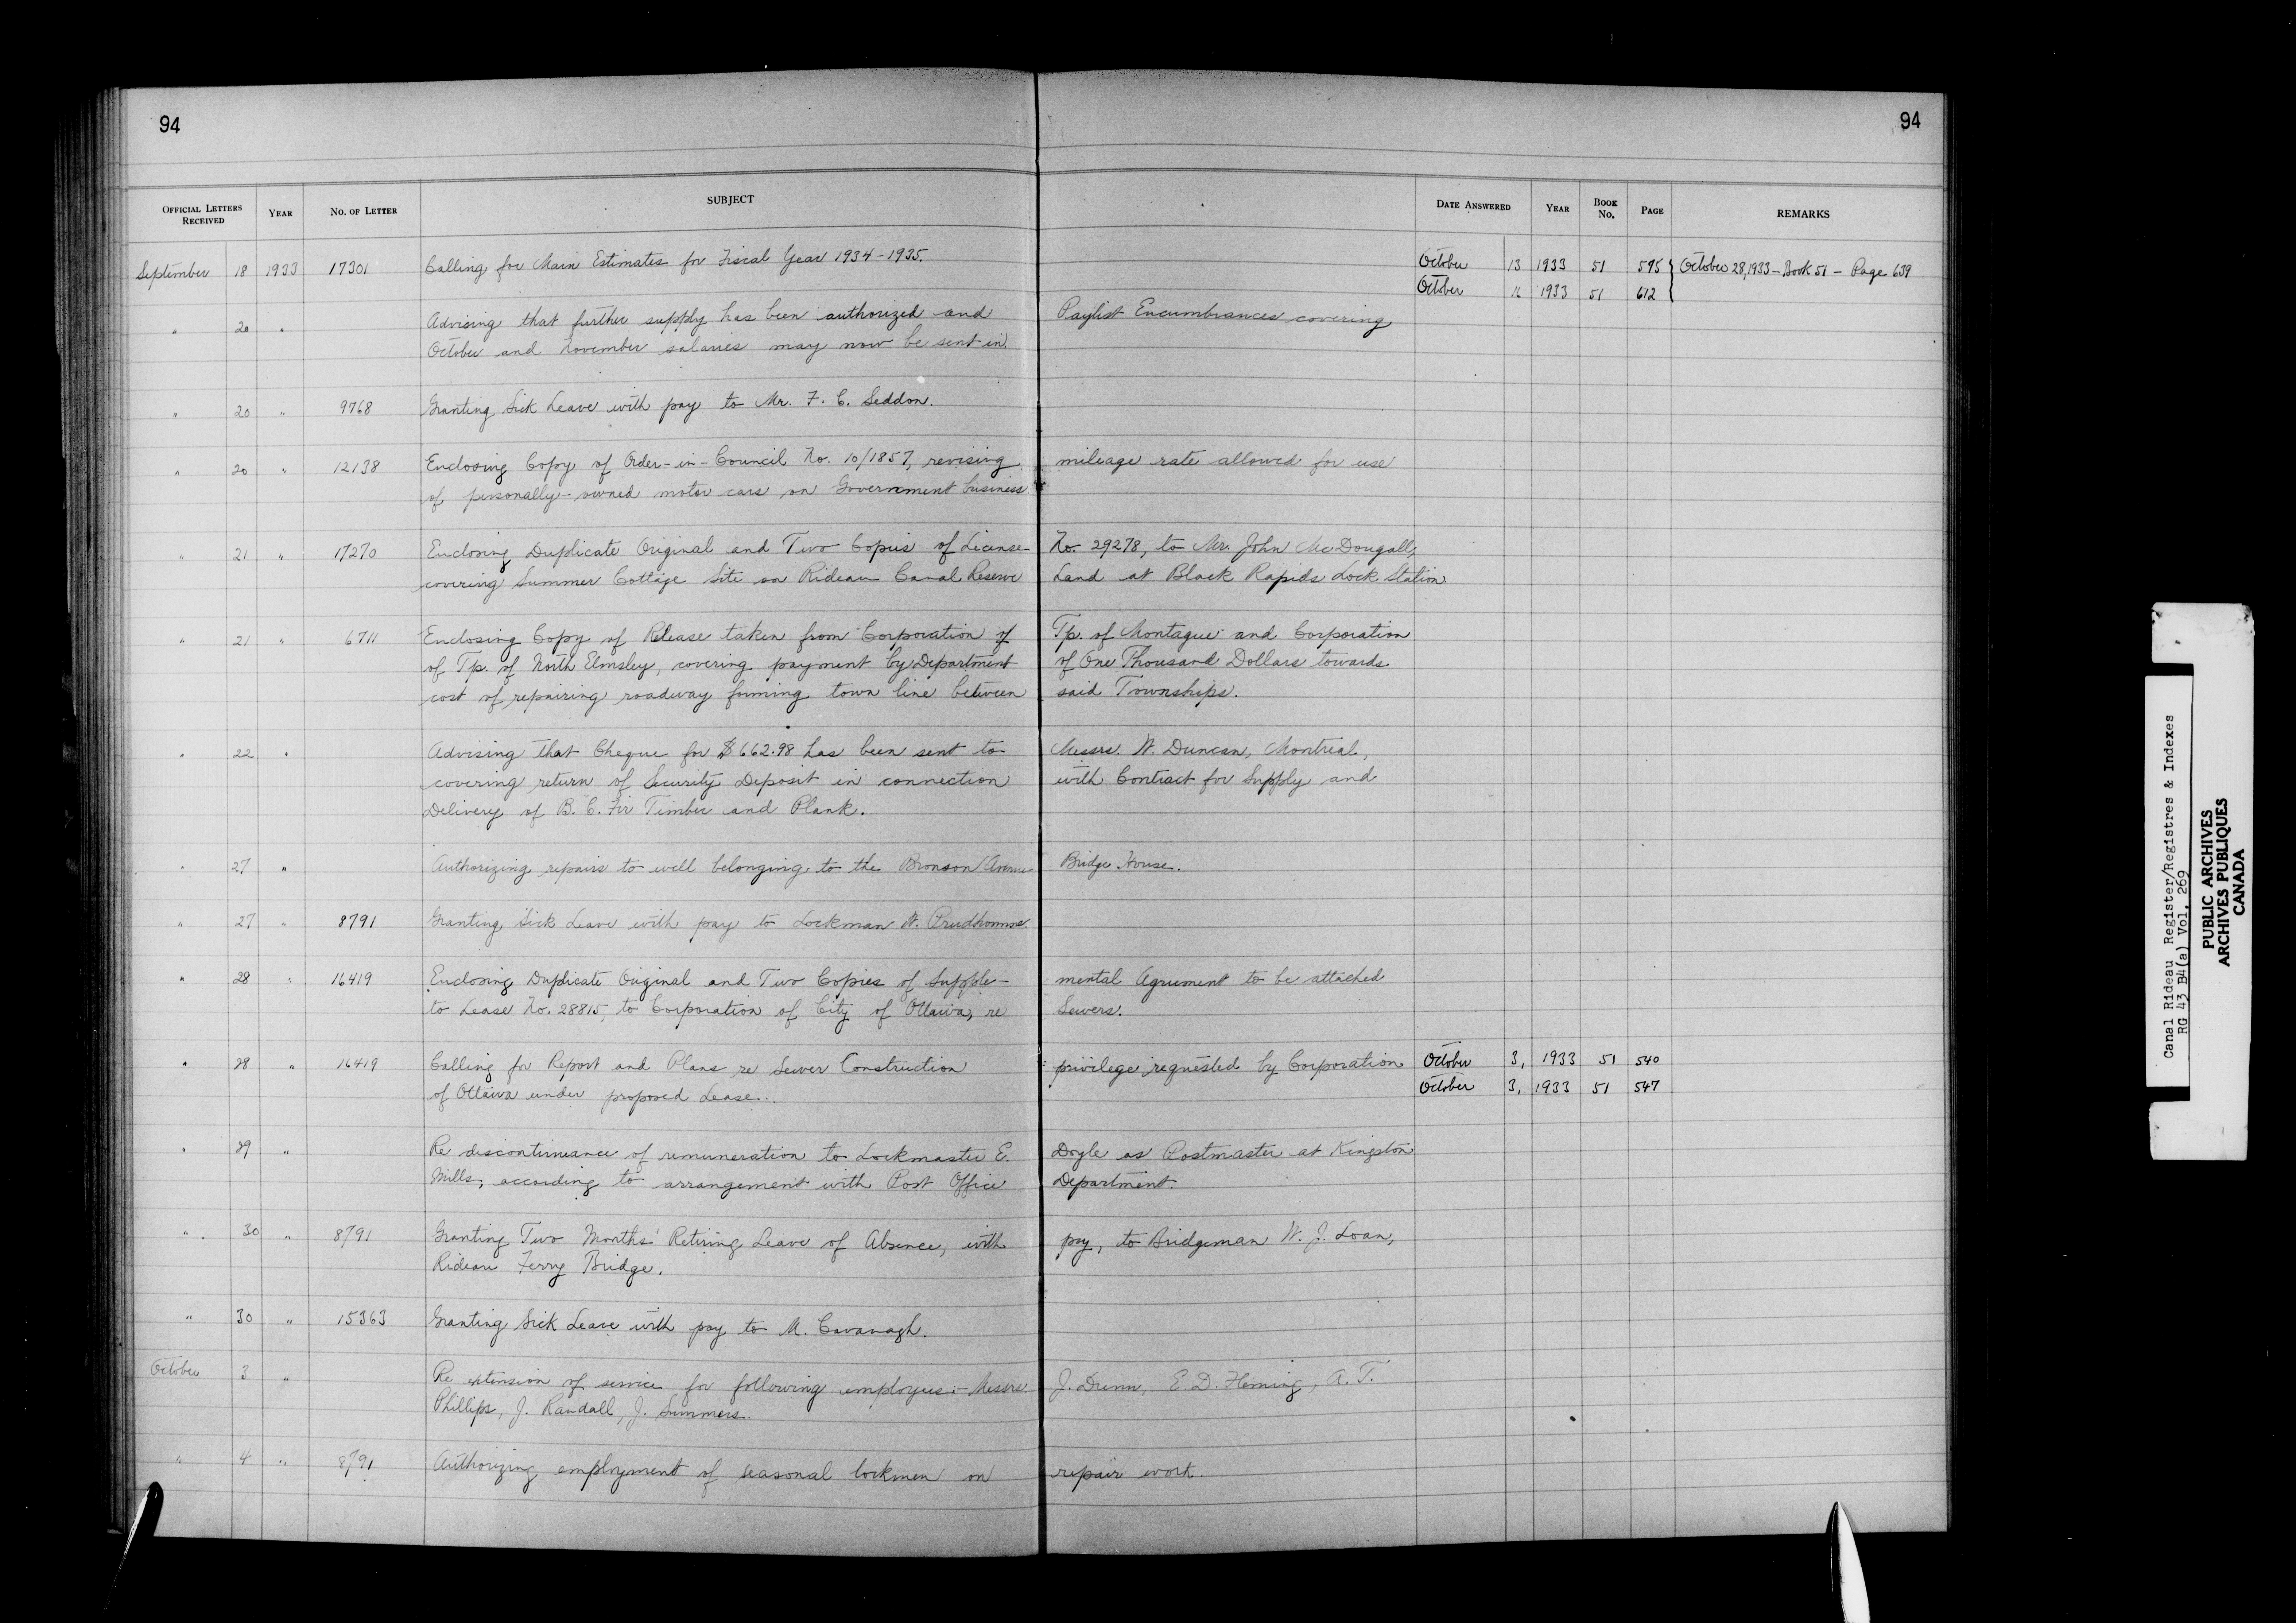 94
94
OFFICIAL LETTERS RECEIVED YEAR NO. OF LETTER SUBJECT DATE ANSWERED YEAR BOOK NO. PAGE REMARKS
September 18 1933 17301 Calling for Main Estimates for Fiscal Year 1934-1935. October 13 1933 51 595 { October 28, 1933 - Book 51 - Page 639
October 16 1933 51 612
" 20 " Advising that further supply has been authorized and Paylist Encumbrances covering
October and November salaries may now be sent in.
" 20 " 9768 Granting Sick Leave with pay to Mr. F. C. Seddon.
" 20 " 12138 Enclosing Copy of Order-in-Council No. 10/1857, revising mileage rate allowed for use
of personally-owned motor cars on Government business.
" 21 " 17270 Enclosing Duplicate Original and Two Copies of License No. 29278, to Mr. John McDougall,
covering Summer Cottage Site on Rideau Canal Reserve Land at Black Rapids Lock Station
" 21 " 6711 Enclosing Copy of Release taken from Corporation of Tp. of Montague and Corporation
of Tp. of North Elmsley, covering payment by Department of One Thousand Dollars towards
cost of repairing roadway forming town line between said Townships.
" 22 " Advising that Cheque for $662.98 has been sent to Messrs. W. Duncan, Montreal,
covering return of Security Deposit in connection with Contract for Supply and
Delivery of B. C. Fir Timber and Plank.
" 27 " Authorizing repairs to well belonging to the Bronson Avenue Bridge House.
" 27 " 8791 Granting Sick Leave with pay to Lockman W. Prudhomme.
" 28 " 16419 Enclosing Duplicate Original and Two Copies of Supple- mental Agreement to be attached
to Lease No. 28815, to Corporation of City of Ottawa, re Sewers.
" 28 " 16419 Calling for Report and Plans re Sewer Construction privilege requested by Corporation October 3, 1933 51 540
of Ottawa under proposed Lease. October 3, 1933 51 547
" 29 " Re discontinuance of remuneration to Lockmaster E. Doyle as Postmaster at Kingston
Mills, according to arrangement with Post Office Department.
" 30 " 8791 Granting Two Months' Retiring Leave of Absence, with pay, to Bridgeman W. J. Loan,
Rideau Ferry Bridge.
" 30 " 15363 Granting Sick Leave with pay to M. Cavanagh.
October 3 " Re extension of service for following employees:- Messrs. J. Dunn, E. D. Fleming, A. T.
Phillips, J. Randall, J. Summers.
" 4 " 8791 Authorizing employment of seasonal lockmen on repair work.
Canal Rideau Register/Registres & Indexes
RG 43 B4(a) Vol. 269
PUBLIC ARCHIVES
ARCHIVES PUBLIQUES
CANADA